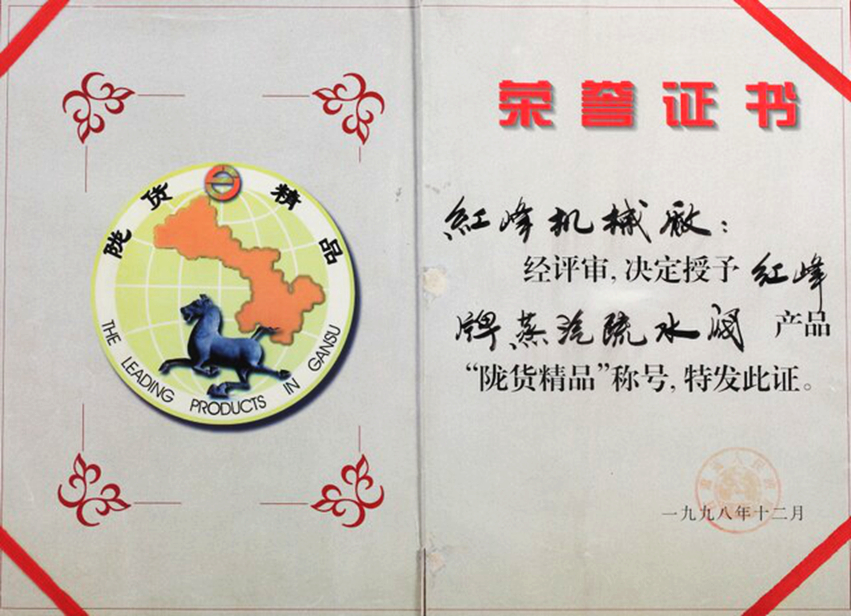 陇货精品
THE LEADING PRODUCTS IN GANSU
荣誉证书
紅峰机械厰:
经评审,决定授予红峰
牌蒸汽疏水阀 产品
“陇货精品”称号,特发此证。
一九九八年十二月